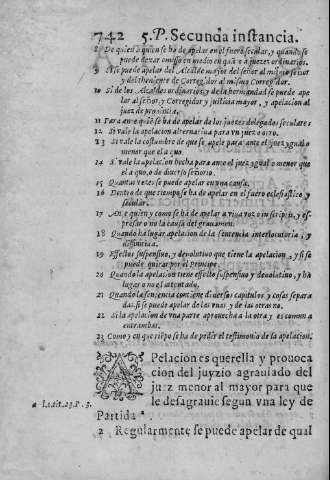 742 5.P. Secunda instancia.
8 De quien a quien se ha de apelar en el fuero secular, y quando se
puede dexar omisso en medio en quãto a juezes ordinarios.
9 Si se puede apelar del Alcalde mayor del señor al mismo señor
y del theniente de Corregidor al mismo Corregidor.
10 Si de los Alcaldes ordinarios, y de la hermandad se puede ape
lar al señor, y Corregidor y justicia mayor, y apelacion al
juez de prouincia.
11 Para ante quiẽ se ha de apelar de los juezes delegados seculares
12 Si vale la apelacion alternatiua para vn juez o otro.
13 Si vale la costumbre de que se apele para ante el juez ygual o
menor que el a quo
14 Si vale la apelacion hecha para ante el juez ygual o menor que
el a quo, o de diuerso señorio.
15 Quantas vezes se puede apelar en vna causa.
16 Dentro de que tiempo se ha de apelar en el fuero eclesiastico y
secular.
17 Ante quien y como se ha de apelar a viua voz o in scriptis, y es-
pressar o no la causa del grauamen.
18 Quando ha lugar apelacion de la sentencia interlocutoria, y
difinitiua.
19 Effectos suspensiuo, y deuolutiuo que tiene la apelacion, y si se
puede quitar por el Principe.
20 Quando la apelacion tiene effecto suspensiuo y deuolutiuo, y ha
lugar o no el attentado.
21 Quando la sentencia contiene diuersos capitulos y cosas separa
das, si se puede apelar de las vnas y de las otras no.
22 Si la apelacion de vna parte aprouecha a la otra y es comun a
entrambas.
23 Como y en que tiẽpo se ha de pedir el testimonio de la apelacion.
APelacion es querella y prouoca
cion del juyzio agrauiado del
juez menor al mayor para que
le desagrauie segun vna ley de
Partida ª.
a La.tit.23.P.3.
2 Regularmente se puede apelar de qual